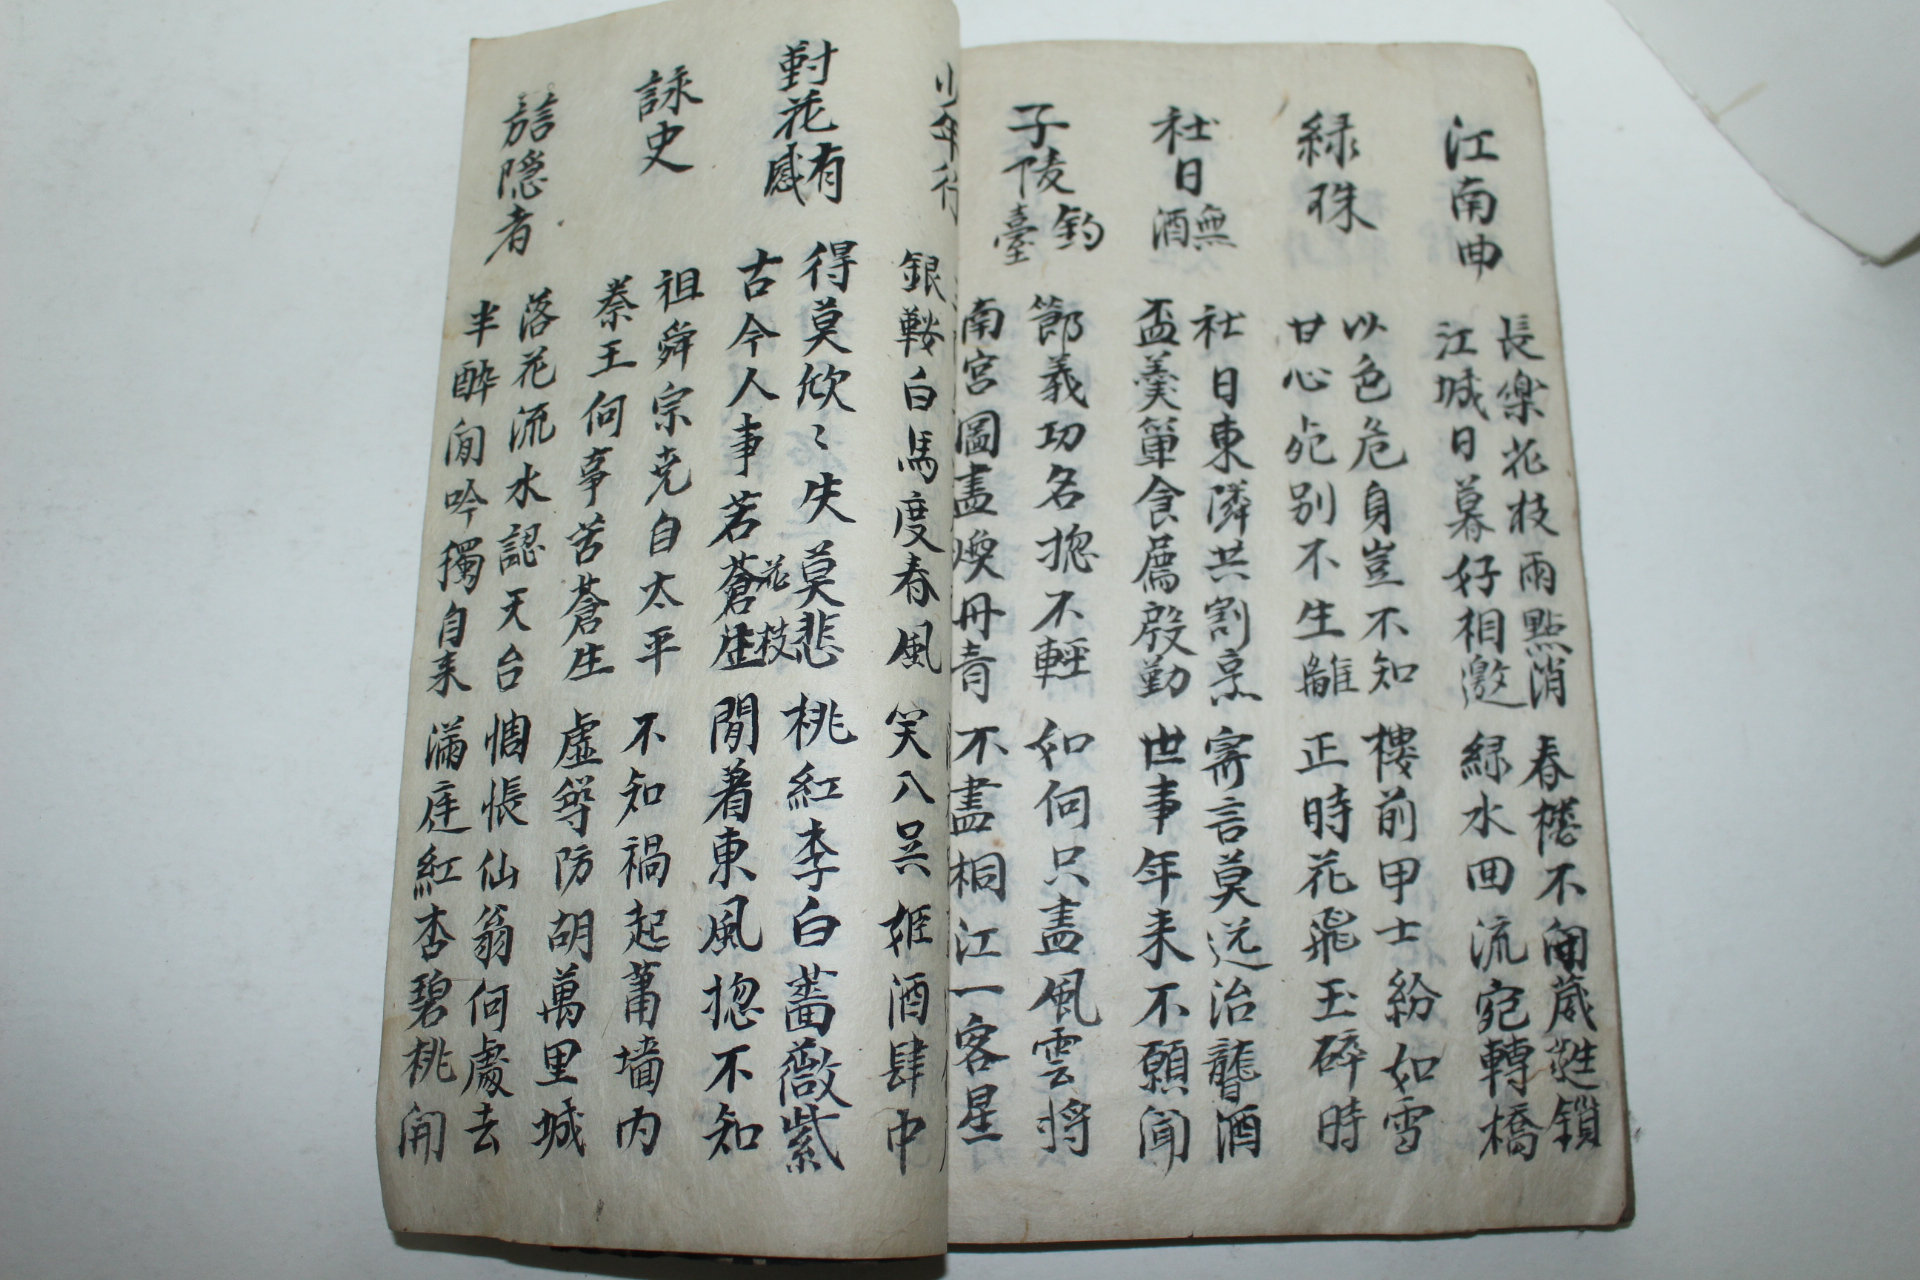 江南曲
長樂花枝雨點消 春樓不閉葳蕤鎖
江城日暮好相邀 綠水回流宛轉橋
綠珠
以色危身豈不知 樓前甲士紛如雪
甘心死別不生離 正時花飛玉碎時
社日無酒
社日東隣共割烹 寄言莫送治聾酒
盃羹簞食薦殷勤 世事年来不願聞
子陵釣臺
節義功名揔不輕 如何只畫風雲将
南宮圖畫煥丹青 不盡桐江一客星
少年行
銀鞍白馬度春風 笑入吴姬酒肆中
對花有感
得莫欣〻失莫悲 桃紅李白薔薇紫
古今人事若花枝 問着東風揔不知
詠史
祖舜宗尭自太平 不知禍起蕭墻内
秦王何事苦蒼生 虛築防胡萬里城
隠者
落花流水認天台 惆悵仙翁何處去
半醉閒吟獨自来 滿庭紅杏碧桃開